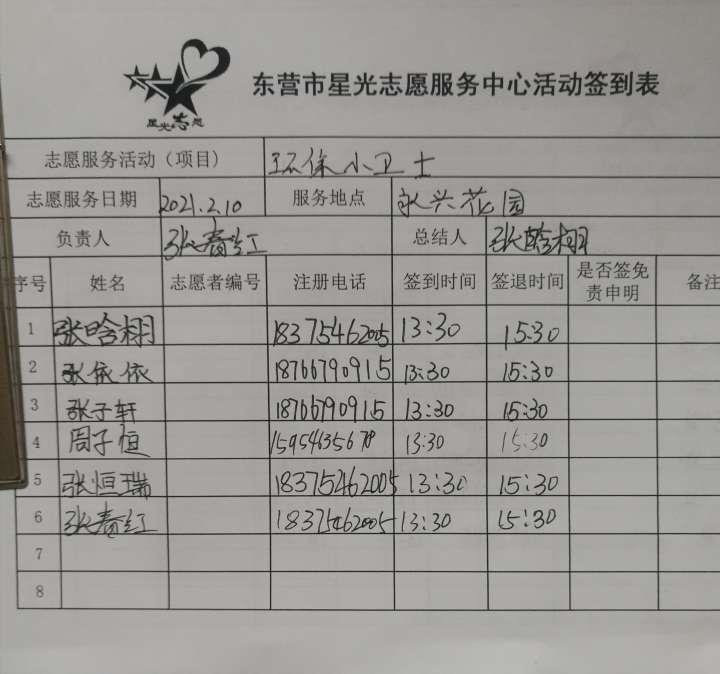 星光志愿
东营市星光志愿服务中心活动签到表
志愿服务活动（项目） 环保小卫士
志愿服务日期 2021.2.10 服务地点 永兴花园
负责人 张春红 总结人 张晗栩
序号 姓名 志愿者编号 注册电话 签到时间 签退时间 是否签免责申明 备注
1 张晗栩 18375462005 13:30 15:30
2 张依依 18766790915 13:30 15:30
3 张子轩 18766790915 13:30 15:30
4 周子恒 15954635678 13:30 15:30
5 张恒瑞 18375462005 13:30 15:30
6 张春红 18375462005 13:30 15:30
7
8